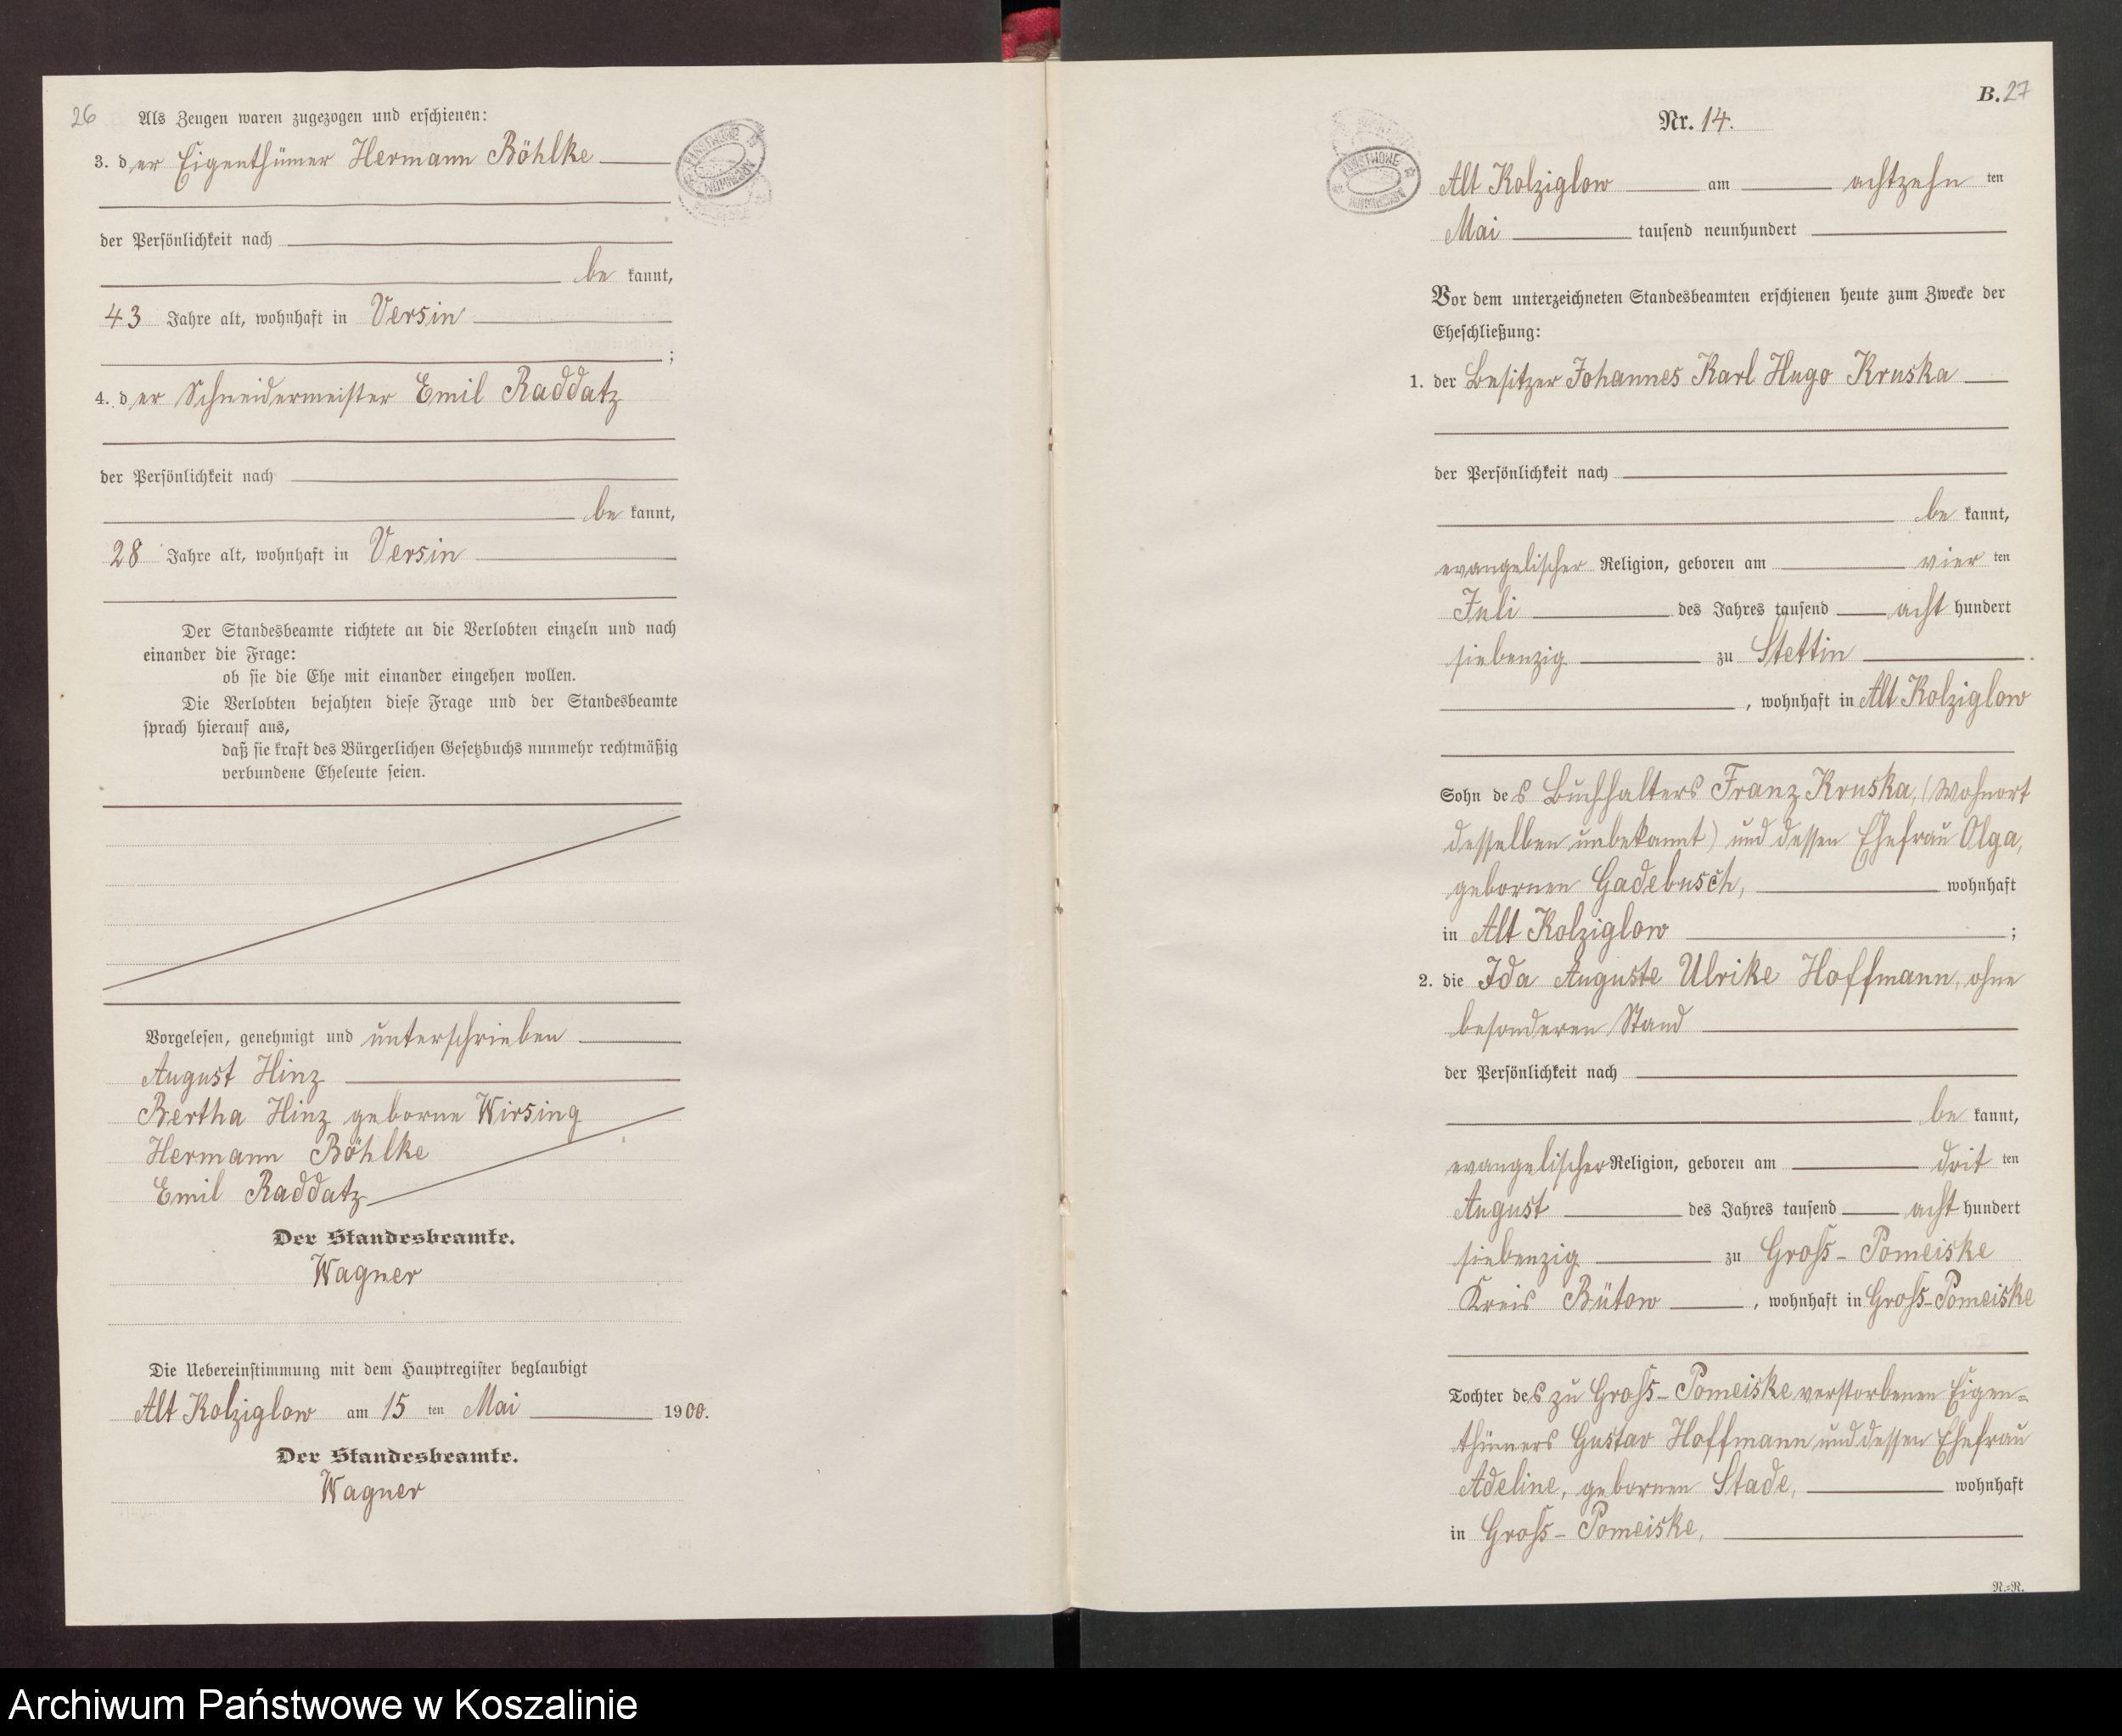 26
Als Zeugen waren zugezogen und erschienen:
3. der Eigenthümer Hermann Böhlke
der Persönlichkeit nach
be kannt,
43 Jahre alt, wohnhaft in Versin
;
4. der Schneidermeister Emil Raddatz
der Persönlichkeit nach
be kannt,
28 Jahre alt, wohnhaft in Versin
Der Standesbeamte richtete an die Verlobten einzeln und nach
einander die Frage:
ob sie die Ehe mit einander eingehen wollen.
Die Verlobten bejahten diese Frage und der Standesbeamte
sprach hierauf aus,
daß sie kraft des Bürgerlichen Gesetzbuchs nunmehr rechtmäßig
verbundene Eheleute seien.
Vorgelesen, genehmigt und unterschrieben
August Hinz
Bertha Hinz geborne Wirsing
Hermann Böhlke
Emil Raddatz
Der Standesbeamte.
Wagner
Die Uebereinstimmung mit dem Hauptregister beglaubigt
Alt Kolziglow am 15 ten Mai 1900.
Der Standesbeamte.
Wagner
B. 27
Nr. 14.
Alt Kolziglow am achtzehn ten
Mai tausend neunhundert
Vor dem unterzeichneten Standesbeamten erschienen heute zum Zwecke der
Eheschließung:
1. der Besitzer Johannes Karl Hugo Kruska
der Persönlichkeit nach
be kannt,
evangelischer Religion, geboren am vier ten
Juli des Jahres tausend acht hundert
siebenzig zu Stettin
, wohnhaft in Alt Kolziglow
Sohn des Buchhalters Franz Kruska, (Wohnort
desselben unbekannt) und dessen Ehefrau Olga,
gebornen Gadebusch, wohnhaft
in Alt Kolziglow ;
2. die Ida Auguste Ulrike Hoffmann, ohne
besonderen Stand
der Persönlichkeit nach
be kannt,
evangelischer Religion, geboren am drit ten
August des Jahres tausend acht hundert
siebenzig zu Groß-Pomeiske
Kreis Bütow , wohnhaft in Groß-Pomeiske
Tochter des zu Groß-Pomeiske verstorbenen Eigen=
thümers Gustav Hoffmann und dessen Ehefrau
Adeline, gebornen Stade, wohnhaft
in Groß-Pomeiske,
R.=R.
Archiwum Państwowe w Koszalinie